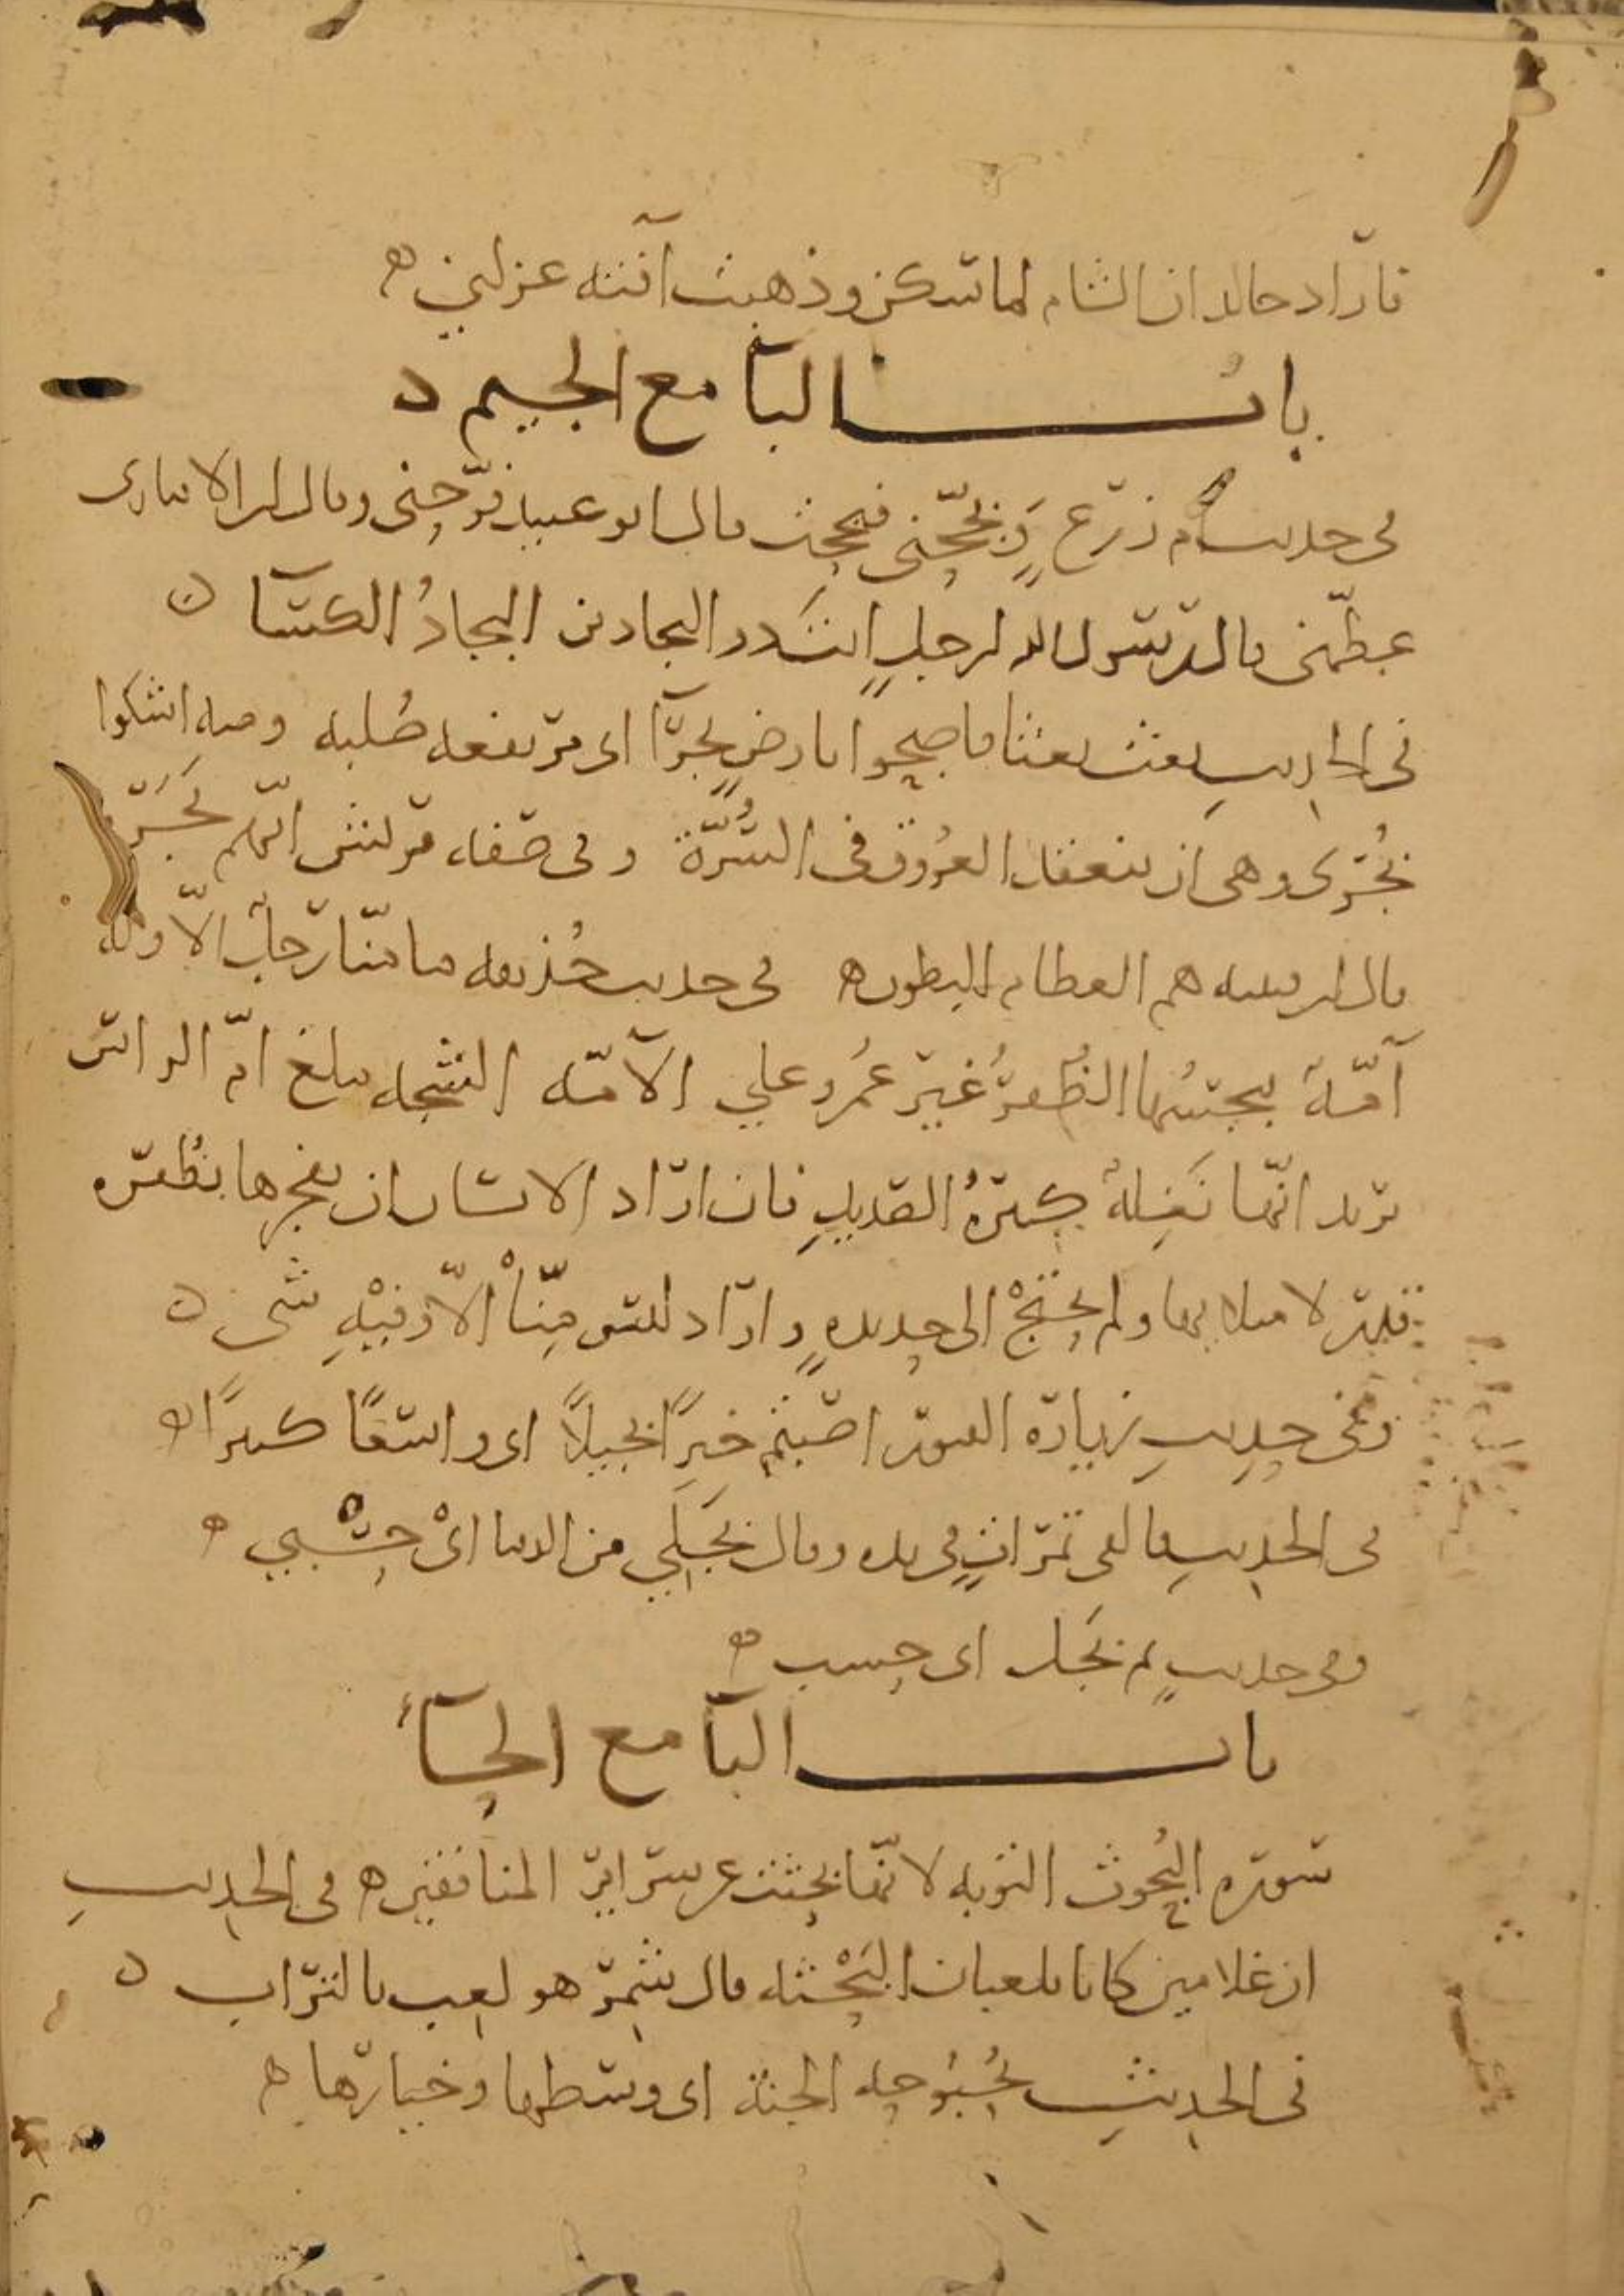 فاراد خالد ان الشام لما سكن وذهبت آفته عزلني ه
باب البآ مع الجيم ن
في حديث ام زرع وَبجّحني فبجحت قال ابو عبيد فرّحني وقال ابن الانباري
عظّمني قال رسول الله لرجل انشد ذا البجادين البجادُ الكسآ ن
في الحديث بعث بعثا فاصبحوا بارضٍ بجرآ اي مرتفعه صُلبه ومنه اشكوا
بُجَرى وهي ان ينعقد العُروق في السُّرَّة وفي صفه قريش اشّحه بَجَرَه
قال ابن قتيبه هم العظام البطون ه في حديث حُذيفه ما منّا رجلٌ الّا وله
آمّةٌ يبجسُها الظُفرُ غيرَ عمرو علي الآمّه الشجه تبلغ امّ الراس
تريد انّها نَغِلةٌ كثيرةُ الصديدِ فان اراد الانسان ان يفجرها بظُفره
قدر لامتلايها ولم يحتَجْ الى حديده واراد ليس مِنّا الّا وفيْهِ شى ن
وفي حديثِ زيارة القبور اصبتم خيرًا بجيلًا اى واسعًا كثيرًا ه
فى الحديث فالقى تمراتٍ في يده وقال بَجَلِي من الدنيا ايْ حَسْبي ه
وفي حديثٍ ثم بَجَل اى حسب ه
باب البآ مع الحآء
سوره البُحُوث التوبه لانّها بحثت عن سراير المنافقين ه في الحديث
ان غلامين كانا يلعبان البَحْثه قال شمر هو لعب بالتراب ن
في الحديث بُحْبُوحه الجنة اى وسطها وخيارها ه